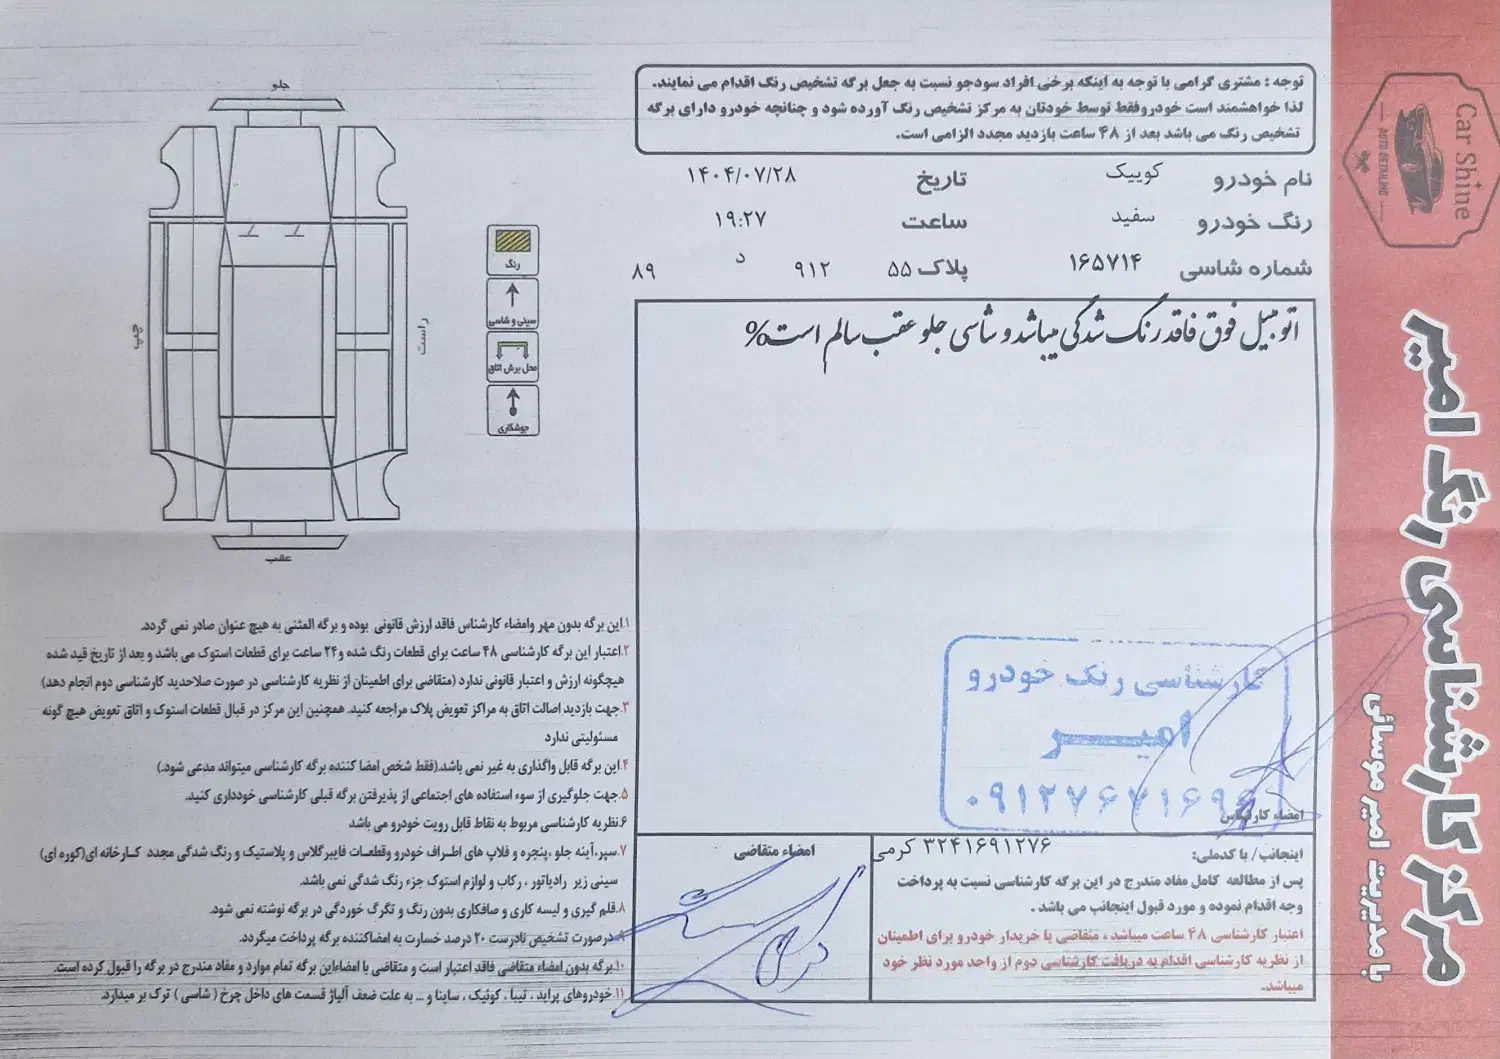 توجه : مشتری گرامی با توجه به اینکه برخی افراد سودجو نسبت به جعل برگه تشخیص رنگ اقدام می نمایند.
لذا خواهشمند است خودروفقط توسط خودتان به مرکز تشخیص رنگ آورده شود و چنانچه خودرو دارای برگه
تشخیص رنگ می باشد بعد از ۴۸ ساعت بازدید مجدد الزامی است.
نام خودرو کوییک تاریخ ۱۴۰۴/۰۷/۲۸
رنگ خودرو سفید ساعت ۱۹:۲۷
شماره شاسی ۱۶۵۷۱۴ پلاک ۵۵ ۹۱۲ د ۸۹
اتومبیل فوق فاقد رنگ شدگی میباشد و شاسی جلو عقب سالم است%
کارشناسی رنگ خودرو
امیر
۰۹۱۲۷۶۷۱۶۹۶
امضاء کارشناس
اینجانب/ با کدملی: ۳۲۴۱۶۹۱۲۷۶ کرمی
پس از مطالعه کامل مفاد مندرج در این برگه کارشناسی نسبت به پرداخت
وجه اقدام نموده و مورد قبول اینجانب می باشد .
اعتبار کارشناسی ۴۸ ساعت میباشد ، متقاضی یا خریدار خودرو برای اطمینان
از نظریه کارشناسی اقدام به دریافت کارشناسی دوم از واحد مورد نظر خود
میباشد.
امضاء متقاضی
جلو
چپ
راست
عقب
رنگ
سینی و شاسی
محل برش اتاق
جوشکاری
۱.این برگه بدون مهر وامضاء کارشناس فاقد ارزش قانونی بوده و برگه المثنی به هیچ عنوان صادر نمی گردد.
۲.اعتبار این برگه کارشناسی ۴۸ ساعت برای قطعات رنگ شده و۲۴ ساعت برای قطعات استوک می باشد و بعد از تاریخ قید شده
هیچگونه ارزش و اعتبار قانونی ندارد (متقاضی برای اطمینان از نظریه کارشناسی در صورت صلاحدید کارشناسی دوم انجام دهد)
۳.جهت بازدید اصالت اتاق به مراکز تعویض پلاک مراجعه کنید. همچنین این مرکز در قبال قطعات استوک و اتاق تعویض هیچ گونه
مسئولیتی ندارد
۴.این برگه قابل واگذاری به غیر نمی باشد.(فقط شخص امضا کننده برگه کارشناسی میتواند مدعی شود.)
۵.جهت جلوگیری از سوء استفاده های اجتماعی از پذیرفتن برگه قبلی کارشناسی خودداری کنید.
۶.نظریه کارشناسی مربوط به نقاط قابل رویت خودرو می باشد
۷.سپر،آینه جلو ،پنجره و فلاپ های اطراف خودرو وقطعات فایبرگلاس و پلاستیک و رنگ شدگی مجدد کارخانه ای(کوره ای)
سینی زیر رادیاتور ، رکاب و لوازم استوک جزء رنگ شدگی نمی باشد.
۸.قلم گیری و لیسه کاری و صافکاری بدون رنگ و تگرگ خوردگی در برگه نوشته نمی شود.
۹.درصورت تشخیص نادرست ۲۰ درصد خسارت به امضاکننده برگه پرداخت میگردد.
۱۰.برگه بدون امضاء متقاضی فاقد اعتبار است و متقاضی با امضاءاین برگه تمام موارد و مفاد مندرج در برگه را قبول کرده است.
۱۱.خودروهای پراید ، تیبا ، کوئیک ، ساینا و ... به علت ضعف آلیاژ قسمت های داخل چرخ ( شاسی ) ترک بر میدارد.
Car Shine
AUTO DETAILING
مرکز کارشناسی رنگ امیر
با مدیریت امیر موسائی